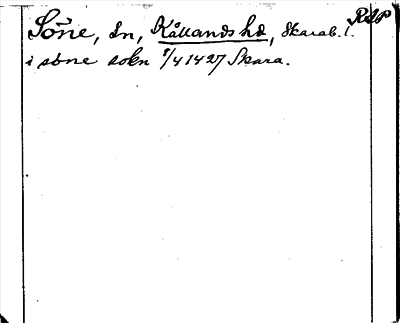 RAP
Söne, sn, Kållands hd, Skarab. l.
i söne sokn 8/4 1427 Skara.